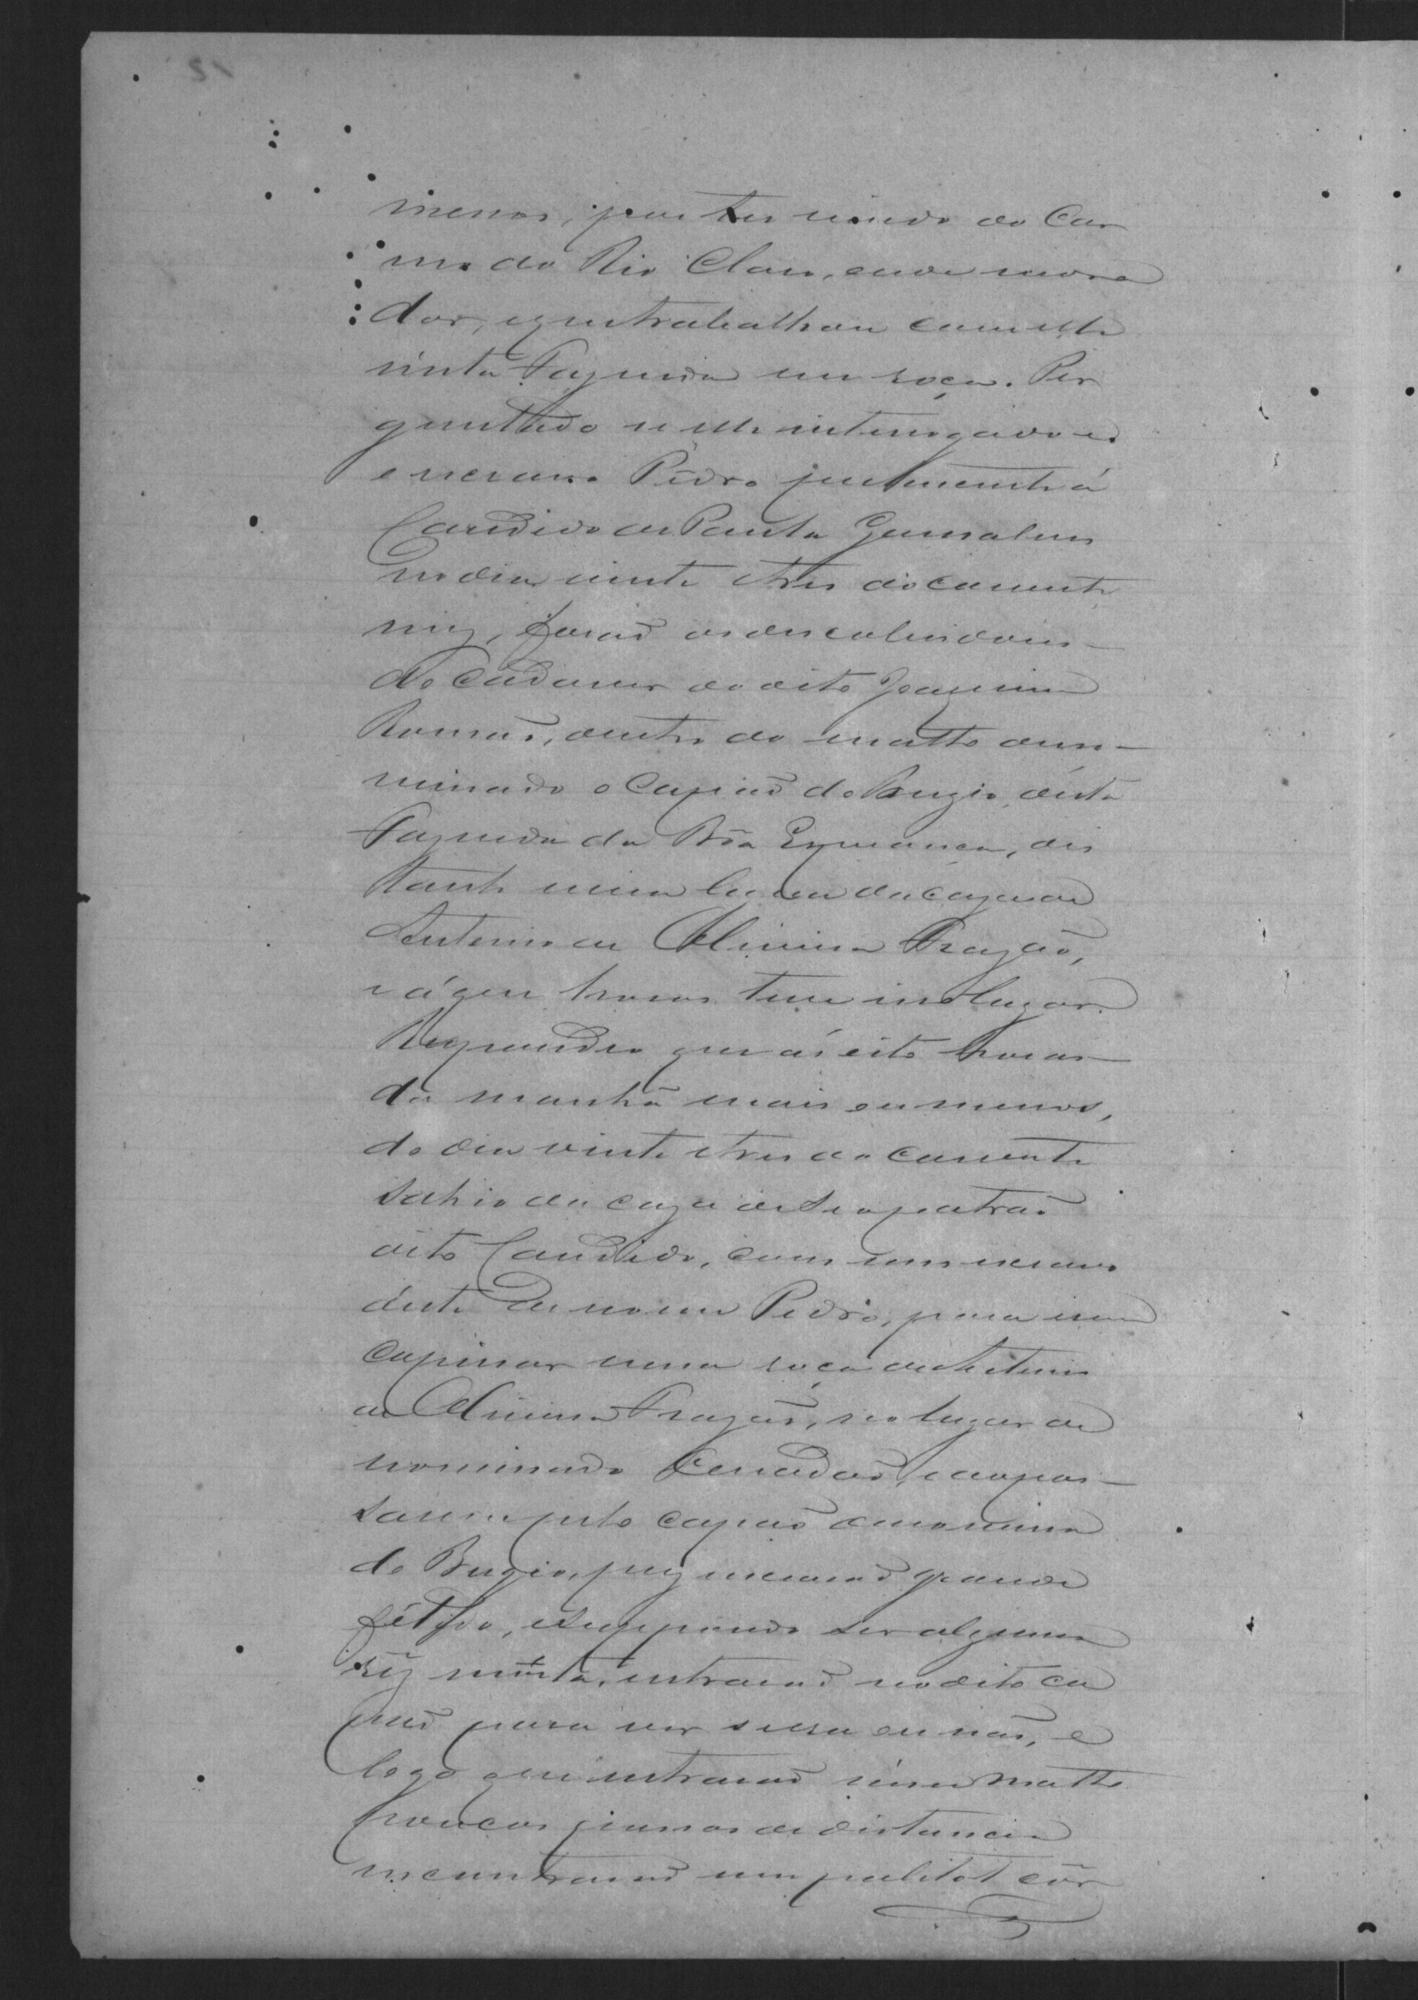 menos, por ter vindo do Car
mo do Rio Claro, onde mora
dor, e que trabalhou com elle
nesta Fazenda em roça. Per
guntado se elle interrogado e o
escravo Pedro juntamente á
Candido de Paula Gonsalves
no dia vinte e tres do corrente
mez, forão os descobridores
do cadaver do dito Joaquim
Romão, dentro do matto deno-
minado o Capão do Bugio, desta
Fazenda da Bôa Esperança, dis
tante meia legoa da caza de
Antonio de Oliveira Frazão,
e á que horas teve isso lugar.
Respondeo que ás oito horas
da manhã mais ou menos,
do dia vinte e tres do corrente
sahio da caza de seo patrão
dito Candido, com um escravo
deste de nome Pedro, para irem
capinar uma roça de Antonio
de Oliveira Frazão, no lugar de
nominado Cerrados, e ao pas-
sarem pelo capão denomina
do Bugio, perceberão grande
fétido, e suppondo ser alguma
rêz morta, entrarão no dito ca
pão para ver se era ou não, e
logo que entrarão nesse matto
poucos passos de distancia
incontrarão um palitot côr